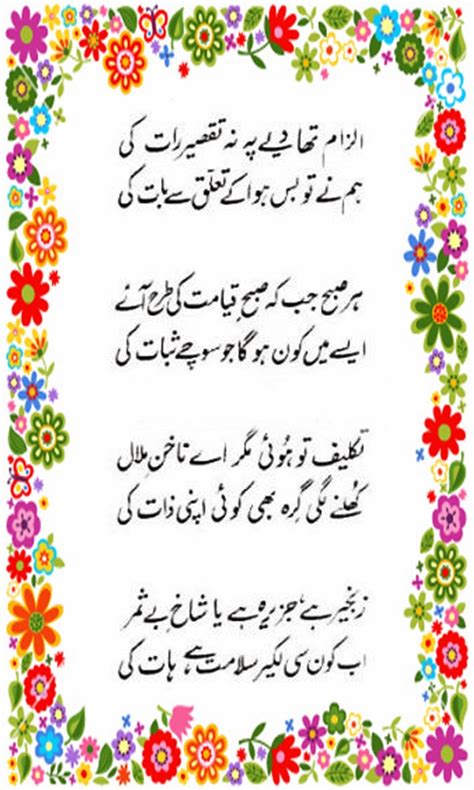 الزام تھا دیے پہ نہ تقصیر رات کی
ہم نے تو بس ہوا کے تعلق سے بات کی
ہر صبح جب کہ صبحِ قیامت کی طرح آئے
ایسے میں کون ہو گا جو سوچے ثبات کی
تکلیف تو ہوئی مگر اے ناخنِ ملال
کھلنے لگی گرہ بھی کوئی اپنی ذات کی
زنجیر ہے، جزیرہ ہے یا شاخِ بے ثمر
اب کون سی لکیر سلامت ہے ہات کی